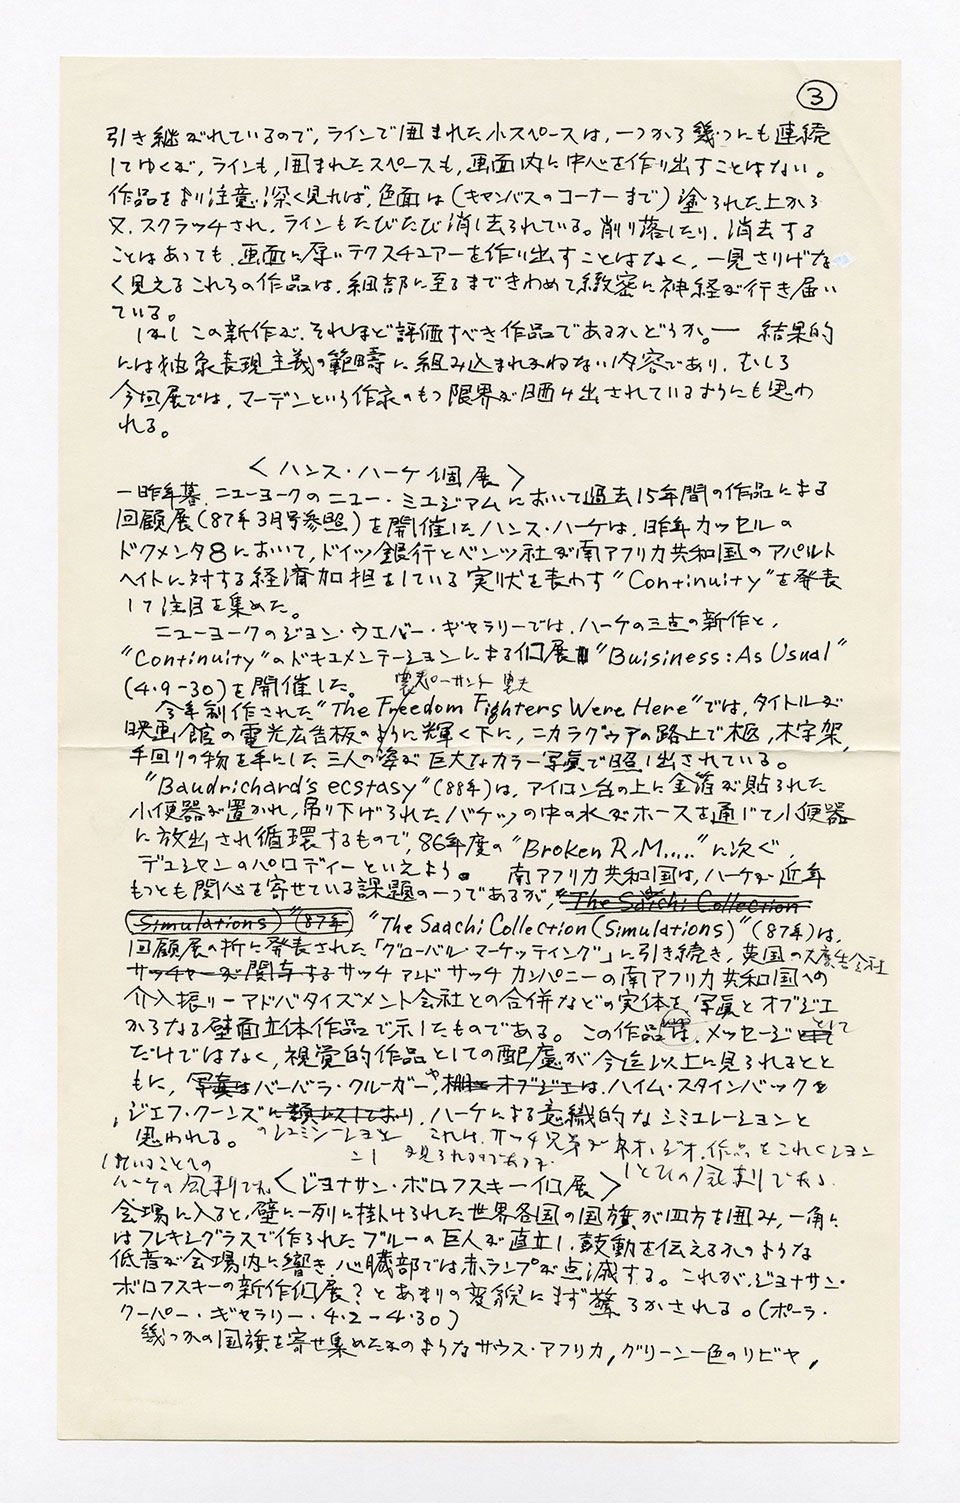 ③
引き継がれているので,ラインで囲まれた小スペースは,一つから幾つにも連続
してゆくが,ラインも,囲まれたスペースも,画面内に中心を作り出すことはない。
作品をより注意深く見れば,色面は(キャンバスのコーナーまで)塗られた上から
又,スクラッチされ,ラインもたびたび消し去られている。削り落したり,消去する
ことはあっても,画面に厚いテクスチュアーを作り出すことはなく,一見さりげな
く見えるこれらの作品は,細部に至るまできわめて緻密に神経が行き届い
ている。
しかしこの新作が,それほど評価すべき作品であるかどうか。— 結果的
には抽象表現主義の範疇に組み込まれかねない内容であり,むしろ
今回展では,マーデンという作家のもつ限界が晒け出されているようにも思わ
れる。
<ハンス・ハーケ個展>
一昨年暮,ニューヨークのニュー・ミュジアムにおいて過去15年間の作品による
回顧展(87年3月号参照)を開催したハンス・ハーケは,昨年カッセルの
ドクメンタ8において,ドイツ銀行とベンツ社が南アフリカ共和国のアパルト
ヘイトに対する経済加担をしている実状を表わす"Continuity"を発表
して注目を集めた。
ニューヨークのジョン・ウエバー・ギャラリーでは,ハーケの三点の新作と,
"Continuity"のドキュメンテーションによる個展"Buisiness:As Usual"
(4.9-30)を開催した。
今年制作された"The Freedom Fighters Were Here"では,タイトルが
映画館の電光広告板のように輝く下に,ニカラグウァの路上で柩,木字架,
手回りの物を手にした三人の姿が巨大なカラー写真で照し出されている。
"Baudrichard's ecstasy"(88年)は,アイロン台の上に金箔が貼られた
小便器が置かれ,吊り下げられたバケツの中の水がホースを通じて小便器
に放出され循環するもので,86年度の"Broken R.M....."に次ぐ,
デュシャンのパロディーといえよう。 南アフリカ共和国は,ハーケが近年
もっとも関心を寄せている課題の一つであるが,"The Saichi Collection
(Simulations)"(87年) "The Saachi Collection(Simulations)"(87年)は,
回顧展の折に発表された「グローバル・マーケッティング」に引き続き,英国の大広告会社
サッチャーが関与するサッチアンドサッチカンパニーの南アフリカ共和国への
介入振り—アドバタイズメント会社との合併などの実体を,写真とオブジェ
からなる壁面立体作品で示したものである。この作品は,メッセージとして
だけではなく,視覚的作品としての配慮が今迄以上に見られるとと
もに,写真はバーバラ・クルーガーや,棚とオブジェは,ハイム・スタインバックや
,ジェフ・クーンズに類似しており,ハーケによる意識的なシミュレーションと
思われる。 のシュミレーションと これは,サッチ兄弟が ネオ・ジオ作品をこれくション
していることへの
ハーケの風刺でも
<ジョナサン・ボロフスキー個展>
会場に入ると,壁に一列に掛けられた世界各国の国旗が四方を囲み,一角に
はフレキシグラスで作られたブルーの巨人が直立し,鼓動を伝えるかのような
低音が会場内に響き,心臓部では赤ランプが点滅する。これが,ジョナサン・
ボロフスキーの新作個展?とあまりの変貌にまず驚ろかされる。(ポーラ・
クーパー・ギャラリー・4.2-4.30)
幾つかの国旗を寄せ集めたかのようなサウス・アフリカ,グリーン一色のリビヤ,